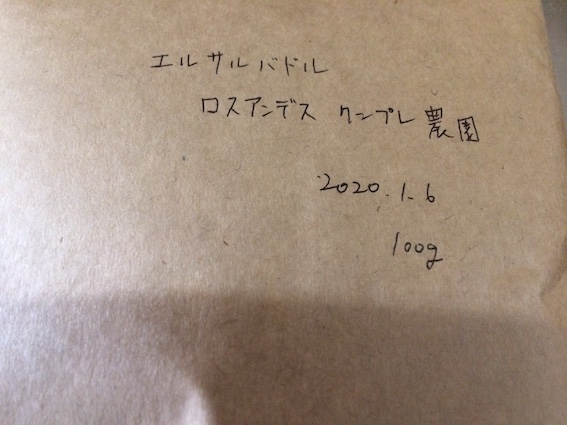 エルサルバドル
ロスアンデス クンプレ農園
2020.1.6
100g